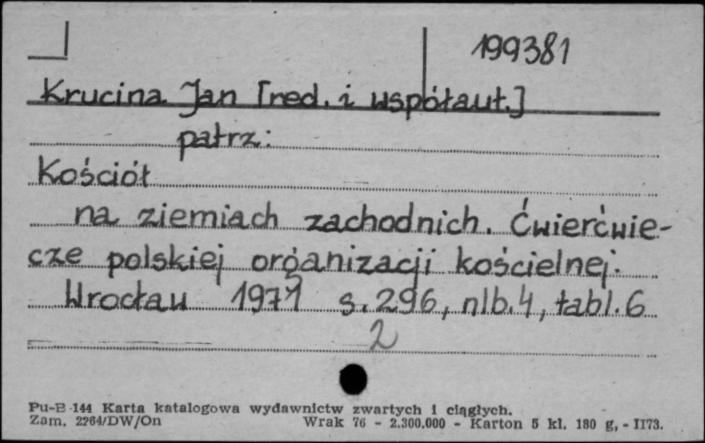 199381
Krucina Jan [red. i współaut.]
patrz:
Kościół
na ziemiach zachodnich. Ćwierćwie-
cze polskiej organizacji kościelnej.
Wrocław 1971 s. 296, nlb. 4, tabl. 6
2
Pu-B-144 Karta katalogowa wydawnictw zwartych i ciągłych.
Zam. 2264/DW/On Wrak 76 - 2.300.000 - Karton 5 kl. 180 g, - II73.